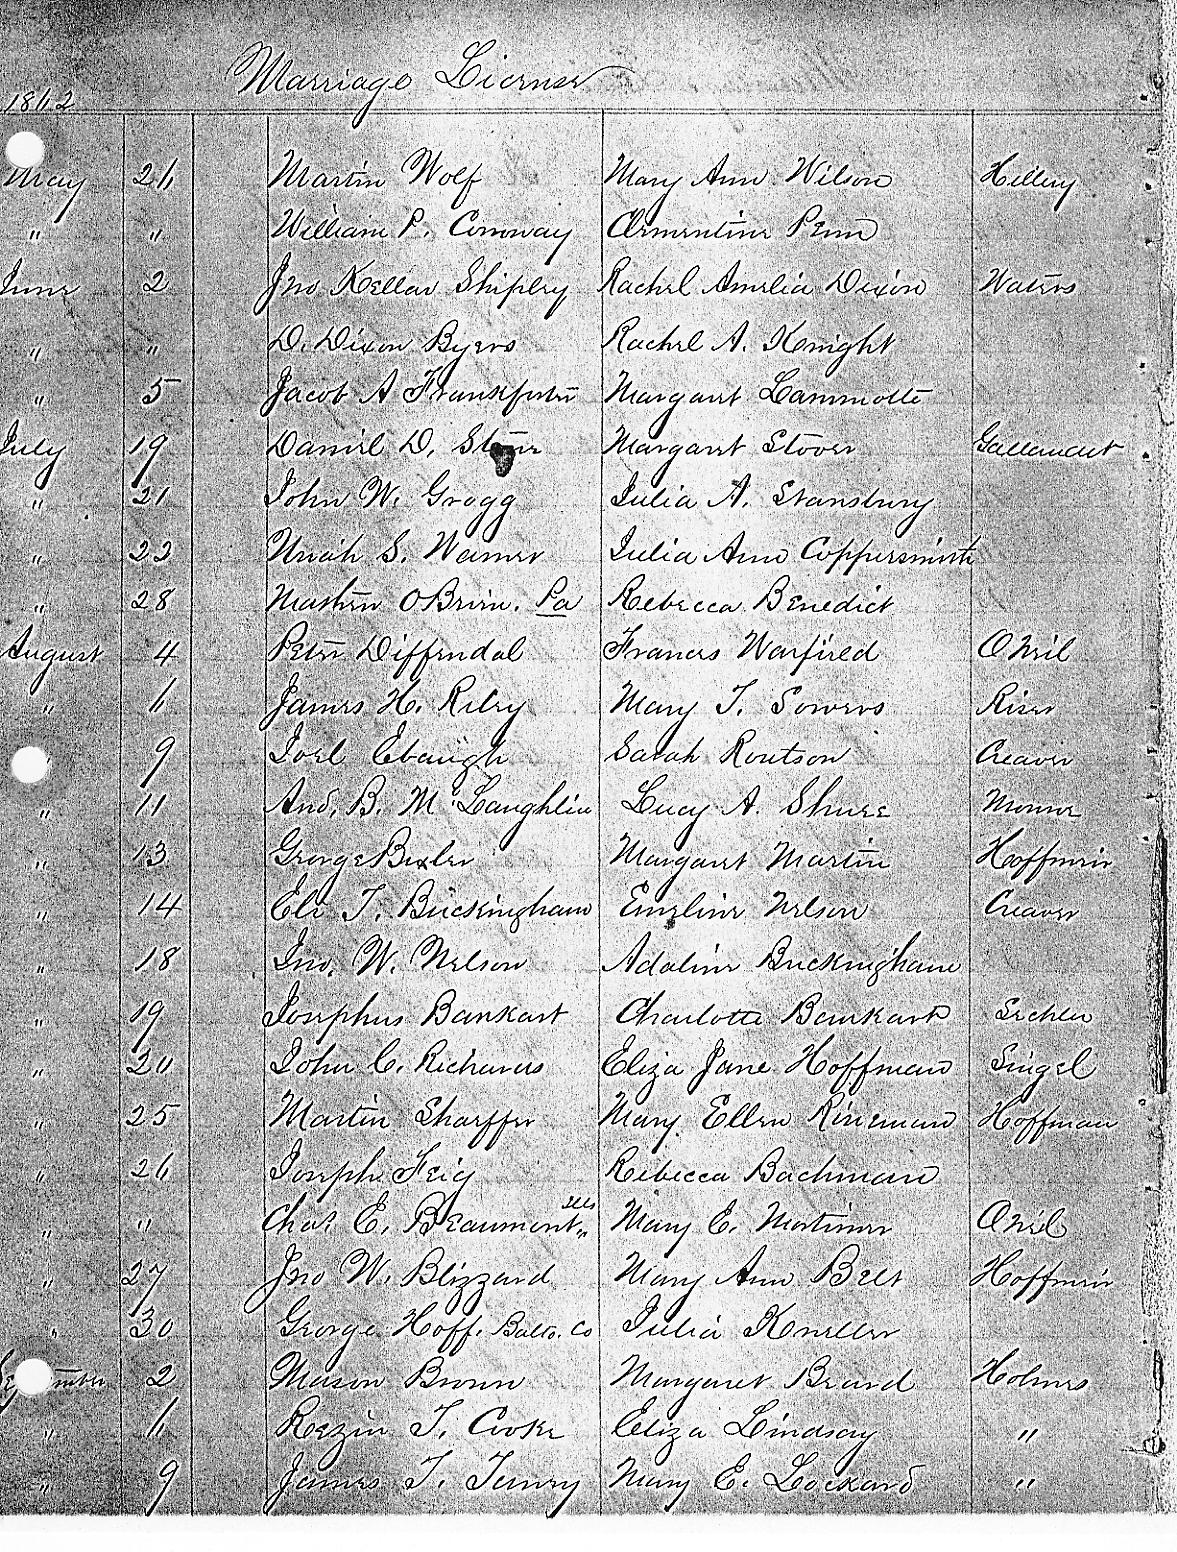 Marriage License
1862
May 26 Martin Wolf Mary Ann Wilson Hillery
" " William P. Conoway Clementine Penn
June 2 Jno Kellar Shipley Rachel Amelia Dixon Waters
" " D. Dixon Byers Rachel A. Knight
" 5 Jacob A Frankforter Margaret Lammotte
July 19 Daniel D. Margaret Stover Gallaudet
" 21 John W. Grogg Julia A. Stansbury
" 23 Uriah S. Warner Julia Ann Coppersmith
" 28 OBrien. Pa Rebecca Benedict
August 4 Peter Diffendal Frances Warfield ONeil
" 6 James H. Riley Mary T. Sowers Riser
9 Joel Ebaugh Sarah Routson Creaver
" 11 And. B. McLaughlin Lucy A. Shuee Monroe
" 13 George Bixler Margaret Martin Hoffmeir
" 14 Eli T. Buckingham Emeline Nelson Creaver
" 18 Jno. W. Nelson Adaline Buckingham
" 19 Josephus Bankart Charlotte Bankart Sechler
" 20 John C. Richards Eliza Jane Hoffman Singel
" 25 Martin Shaeffer Mary Ellen Rineman Hoffman
" 26 Joseph Feig Rebecca Bachman
" " Chas E. Beaumont Ills " Mary E. Mortimer ONeil
" 27 Jno W. Blizzard Mary Ann Belt Hoffmeir
" 30 George Hoff. Balto. Co Julia Kneller
September 2 Mason Brown Margaret Beard Holmes
" 6 Rezin T. Cooke Eliza Lindsay "
" 9 James T. Mary E. Lockard "